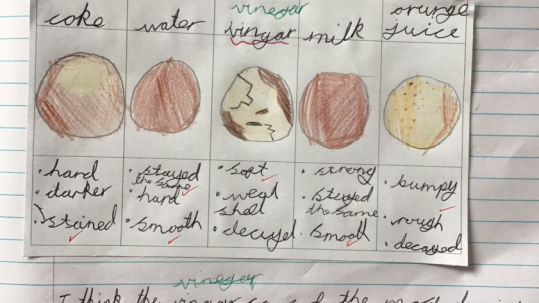 coke
water
vinegar
vingar
milk
orunge
juice
hard
darker
stained
stayed
the same
hard
smooth
soft
weal
shell
decayed
strong
stayed
the same
smooth
bumpy
rough
decayed
vinegar
I think the